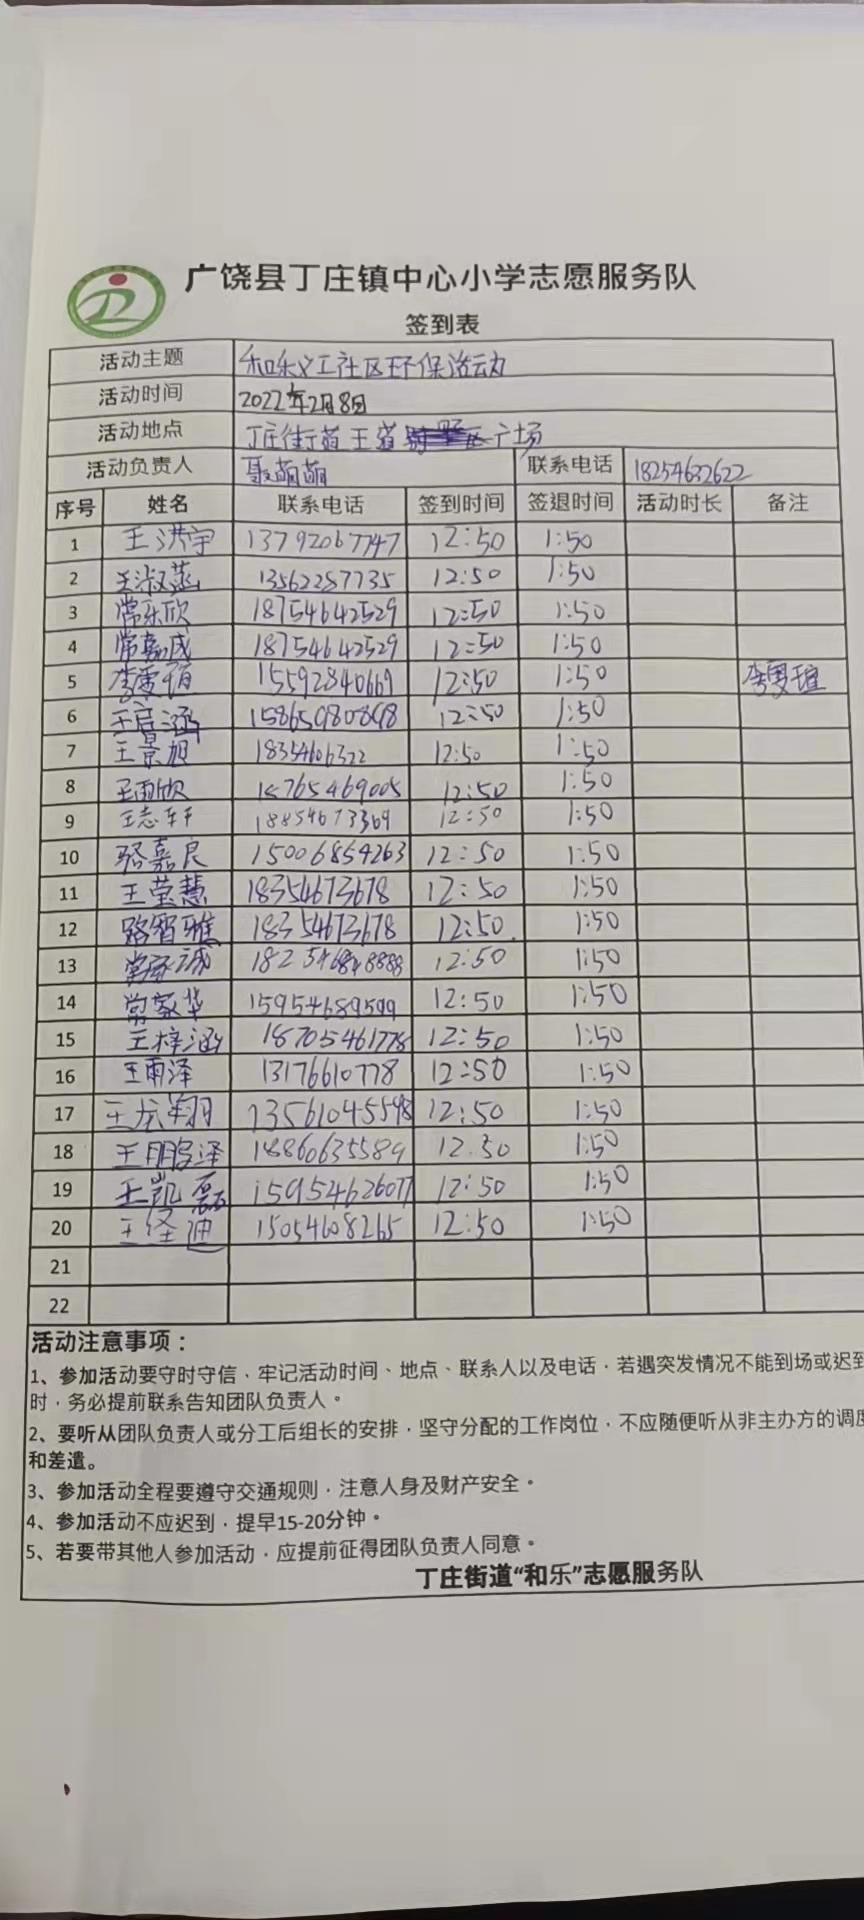 广饶县丁庄镇中心小学志愿服务队
签到表
活动主题 和乐义工社区环保活动
活动时间 2022年2月8日
活动地点 丁庄街道王道 广场
活动负责人 聂萌萌 联系电话 18254632622
序号 姓名 联系电话 签到时间 签退时间 活动时长 备注
1 王洪宇 13792067747 12:50 1:50
2 王淑菡 13562287735 12:50 1:50
3 常乐欣 18754642529 12:50 1:50
4 常嘉成 18754642529 12:50 1:50
5 李雯瑄 15592840669 12:50 1:50 李雯瑄
6 王启涵 15865980898 12:50 1:50
7 王景旭 18354606322 12:50 1:50
8 王雨欣 18765469005 12:50 1:50
9 王志轩 18854673369 12:50 1:50
10 骆嘉良 15006854263 12:50 1:50
11 王莹慧 18354673678 12:50 1:50
12 路智雅 18354673678 12:50 1:50
13 18254684888 12:50 1:50
14 常家华 15954689599 12:50 1:50
15 王梓涵 18705461778 12:50 1:50
16 王雨泽 13176610778 12:50 1:50
17 王龙翔 13561045598 12:50 1:50
18 王鹏泽 18860635589 12:50 1:50
19 王凯磊 15954626077 12:50 1:50
20 王经迪 15054608265 12:50 1:50
21
22
活动注意事项：
1、参加活动要守时守信，牢记活动时间、地点、联系人以及电话，若遇突发情况不能到场或迟到
时，务必提前联系告知团队负责人。
2、要听从团队负责人或分工后组长的安排，坚守分配的工作岗位，不应随便听从非主办方的调度
和差遣。
3、参加活动全程要遵守交通规则，注意人身及财产安全。
4、参加活动不应迟到，提早15-20分钟。
5、若要带其他人参加活动，应提前征得团队负责人同意。
丁庄街道“和乐”志愿服务队